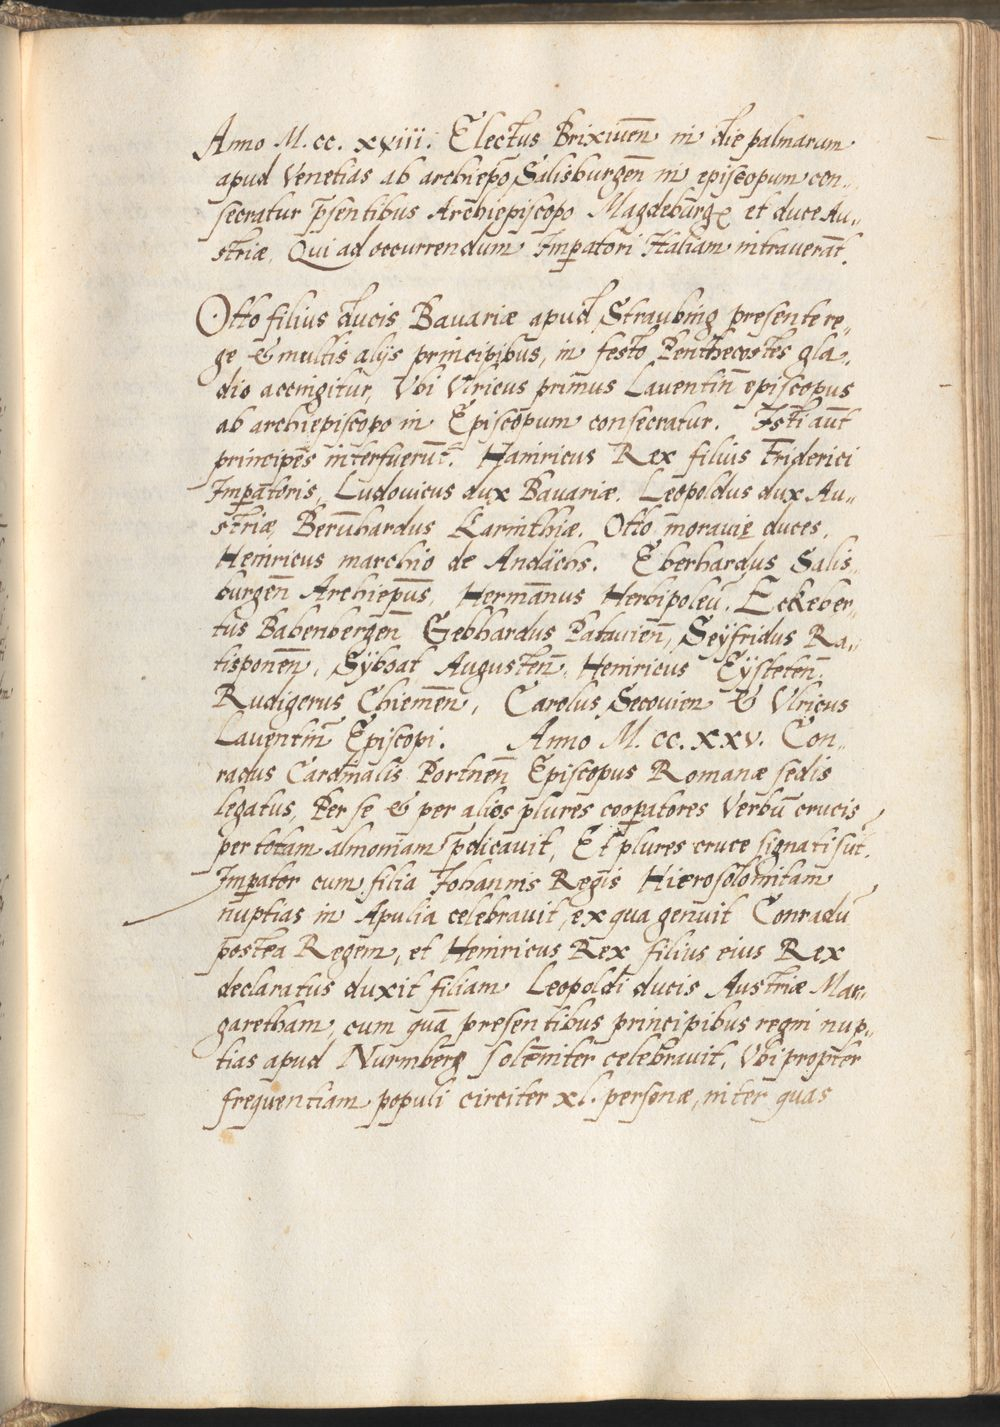 Anno M. cc. xxiii. Electus Brixineñ in die palmarum
apud Venetias ab archiepo Salisburgeñ in episcopum con¬
secratur p̄sentibus Archiepiscopo Magdeburg et duce Au¬
striæ, Qui ad occurrendum Imperatori Italiam intraverāt.
Otto filius ducis Bauariæ apud Straubing presente re¬
ge & multis alijs principibus, in festo Penthecostes gla¬
dio accingitur, Vbi Vlricus primus Lauentiñ episcopus
ab archiepiscopo in Episcopum consecratur. Isti aūt
principes interfuerūt. Hainricus Rex filius Friderici
Imperatoris, Ludouicus dux Bauariæ. Leopoldus dux Au¬
striæ, Bernhardus Karinthiæ. Otto moraviæ duces,
Heinricus marchio de Andächs. Eberhardus Salis¬
burgeñ Archiepūs, Hermānus Herbipoleñ, Eckeber¬
tus Babenbergeñ Gebhardus Patauieñ, Seÿfridus Ra¬
tisponeñ, Sÿboat Augusteñ, Heinricus Eÿsteteñ,
Rudigerus Chiemeñ, Carolus Secouien & Vlricus
Lauentiñ Episcopi. Anno M. cc. xxv. Con¬
radus Cardinalis Portueñ Episcopus Romanæ sedis
legatus, Per se & per alios plures cooperatores Verbū crucis
per totam almoniam p̄dicauit, Et plures cruce signati sūt,
Imperator cum filia Johannis Regis Hierosolomitam
nuptias in Apulia celebravit, ex qua genuit Conradū
postea Regem, et Heinricus Rex filius eius Rex
declaratus duxit filiam Leopoldi ducis Austriæ Mar¬
garetham, cum quā presentibus principibus regni nup¬
tias apud Nurmberg solēniter celebravit, Vbi propter
frequentiam populi circiter xl. personæ, inter quas